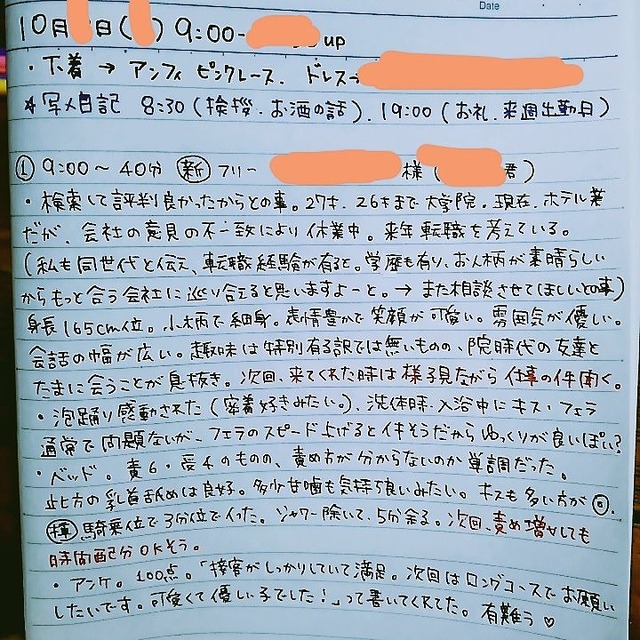 Date
10月 日( ) 9:00- up
・下着 → アンフィ ピンクレース、ドレス→
*写メ日記 8:30 (挨拶・お酒の話)、19:00 (お礼、来週出勤日)
① 9:00〜40分 ㊟新 フリー 様 ( 君)
・検索して評判良かったからとの事。27才、26才まで大学院。現在、ホテル業
だが、会社の意見の不一致により休業中。来年転職を考えている。
(私も同世代と伝え、転職経験が有ると。学歴も有り、お人柄が素晴らしい
からもっと合う会社に巡り合えると思いますよーと。→ また相談させてほしいとの事)
身長165cm位。小柄で細身。表情豊かで笑顔が可愛い。雰囲気が優しい。
会話の幅が広い。趣味は特別有る訳では無いものの、院時代の友達と
たまに会うことが息抜き。次回、来てくれた時は様子見ながら仕事の件聞く。
・泡踊り感動された(密着好きみたい。)、洗体時・入浴中にキス・フェラ
通常で問題ないが、フェラのスピード上げるとイキそうだからゆっくりが良いぽい?
・ベッド。責6・受4のものの、責め方が分からないのか単調だった。
此方の乳首舐めは良好。多少甘噛も気持ち良いみたい。キスも多い方が◎。
騎乗位で3分位でイった。シャワー除いて、5分余る。次回、責め増やしても
時間配分OKそう。
・アンケ。100点。「接客がしっかりしていて満足。次回はロングコースでお願い
したいです。可愛くて優しい子でした!」って書いてくれてた。有難う♡